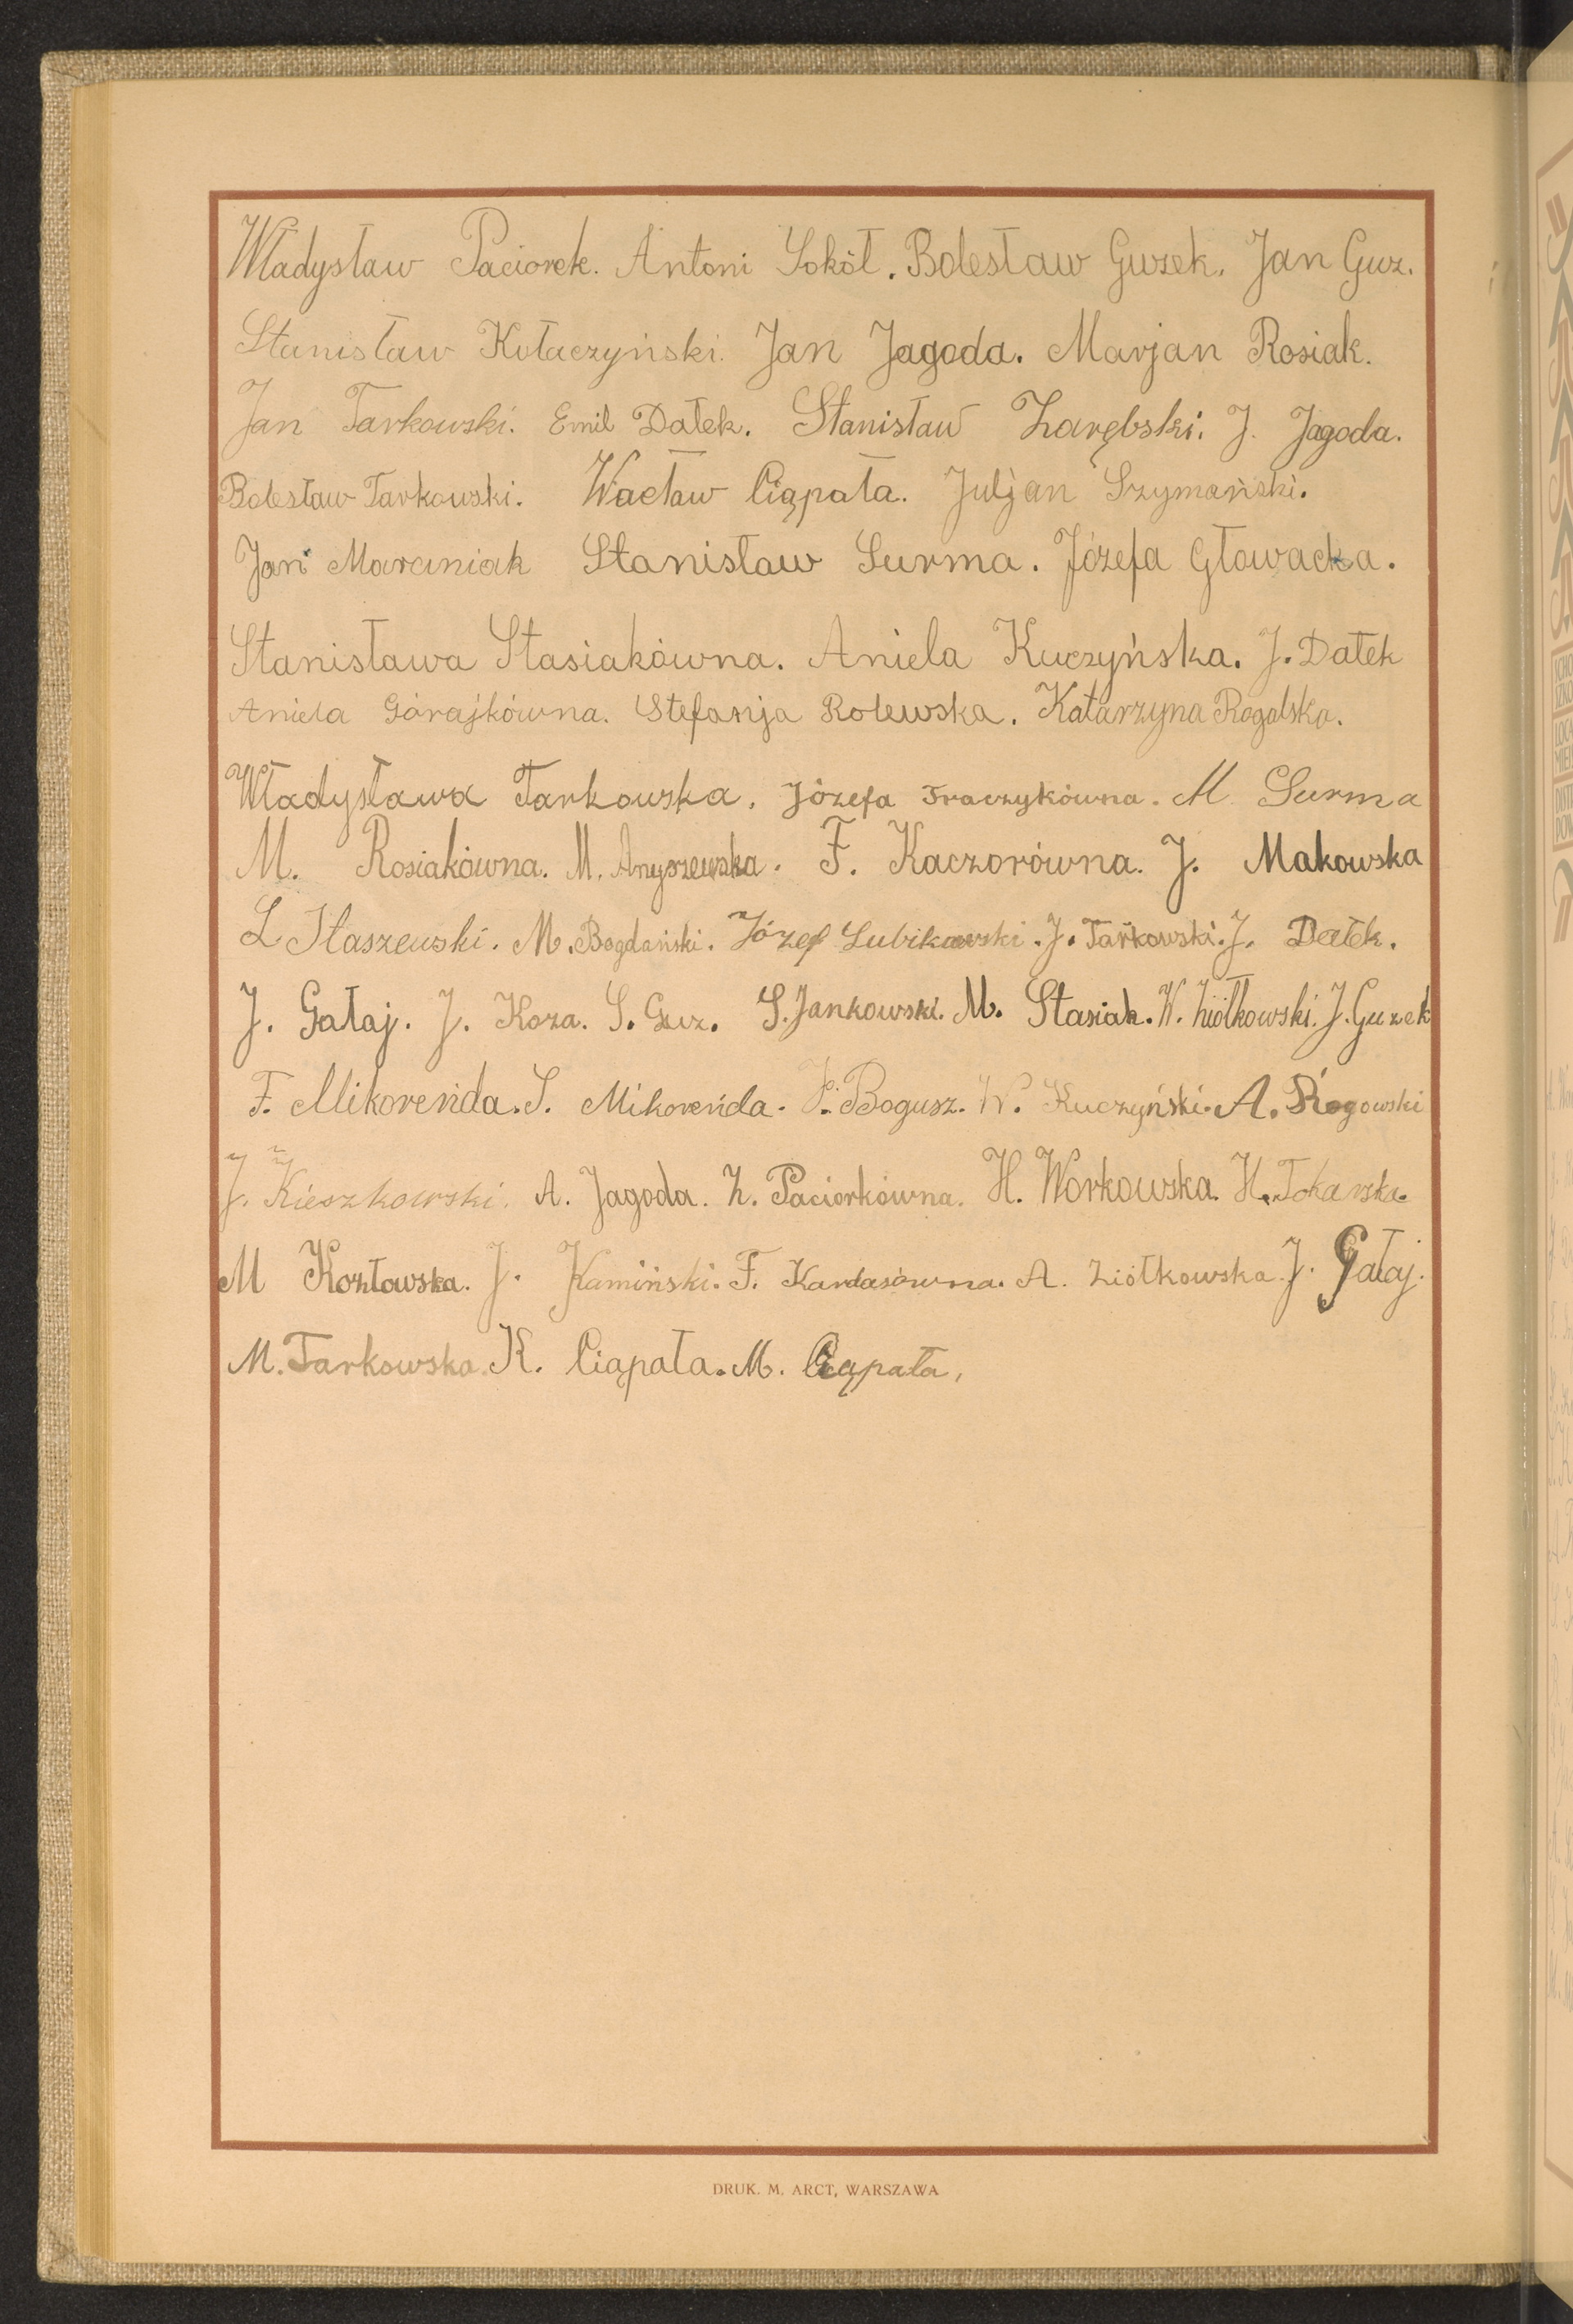 Władysław Paciorek. Antoni Sokół. Bolesław Guzek. Jan Guz.
Stanisław Kołaczyński. Jan Jagoda. Marjan Rosiak.
Jan Tarkowski. Emil Dałek. Stanisław Zarębski. J. Jagoda.
Bolesław Tarkowski. Wacław Ciąpała. Juljan Szymański.
Jan Marciniak Stanisław Surma. Józefa Głowacka.
Stanisława Stasiakówna. Aniela Kuczyńska. J. Dałek
Aniela Górajkówna. Stefanja Rolewska. Katarzyna Rogalska.
Władysława Tarkowska. Józefa Fraczykówna. M. Surma
M. Rosiakówna. M. Anyszewska. F. Kaczorówna. J. Makowska
L Staszewski. M. Bogdański. Józef Lubikowski. J. Tarkowski. J. Dałek.
J. Gałaj. J. Koza. S. Guz. S. Jankowski. M. Stasiak. W. Ziółkowski. J. Guzek
F. Mikoreńda. S. Mikoreńda. Bogusz. W. Kuczyński. A. Rogowski
J. Kieszkowski. A. Jagoda. Z. Paciorkówna. H. Workowska. H. Tokarska.
M Kozłowska. J. Kamiński. F. Kardasówna. A. Ziółkowska. J. Gałaj.
M. Tarkowska. K. Ciąpała. M. Ciąpała,
DRUK. M. ARCT, WARSZAWA